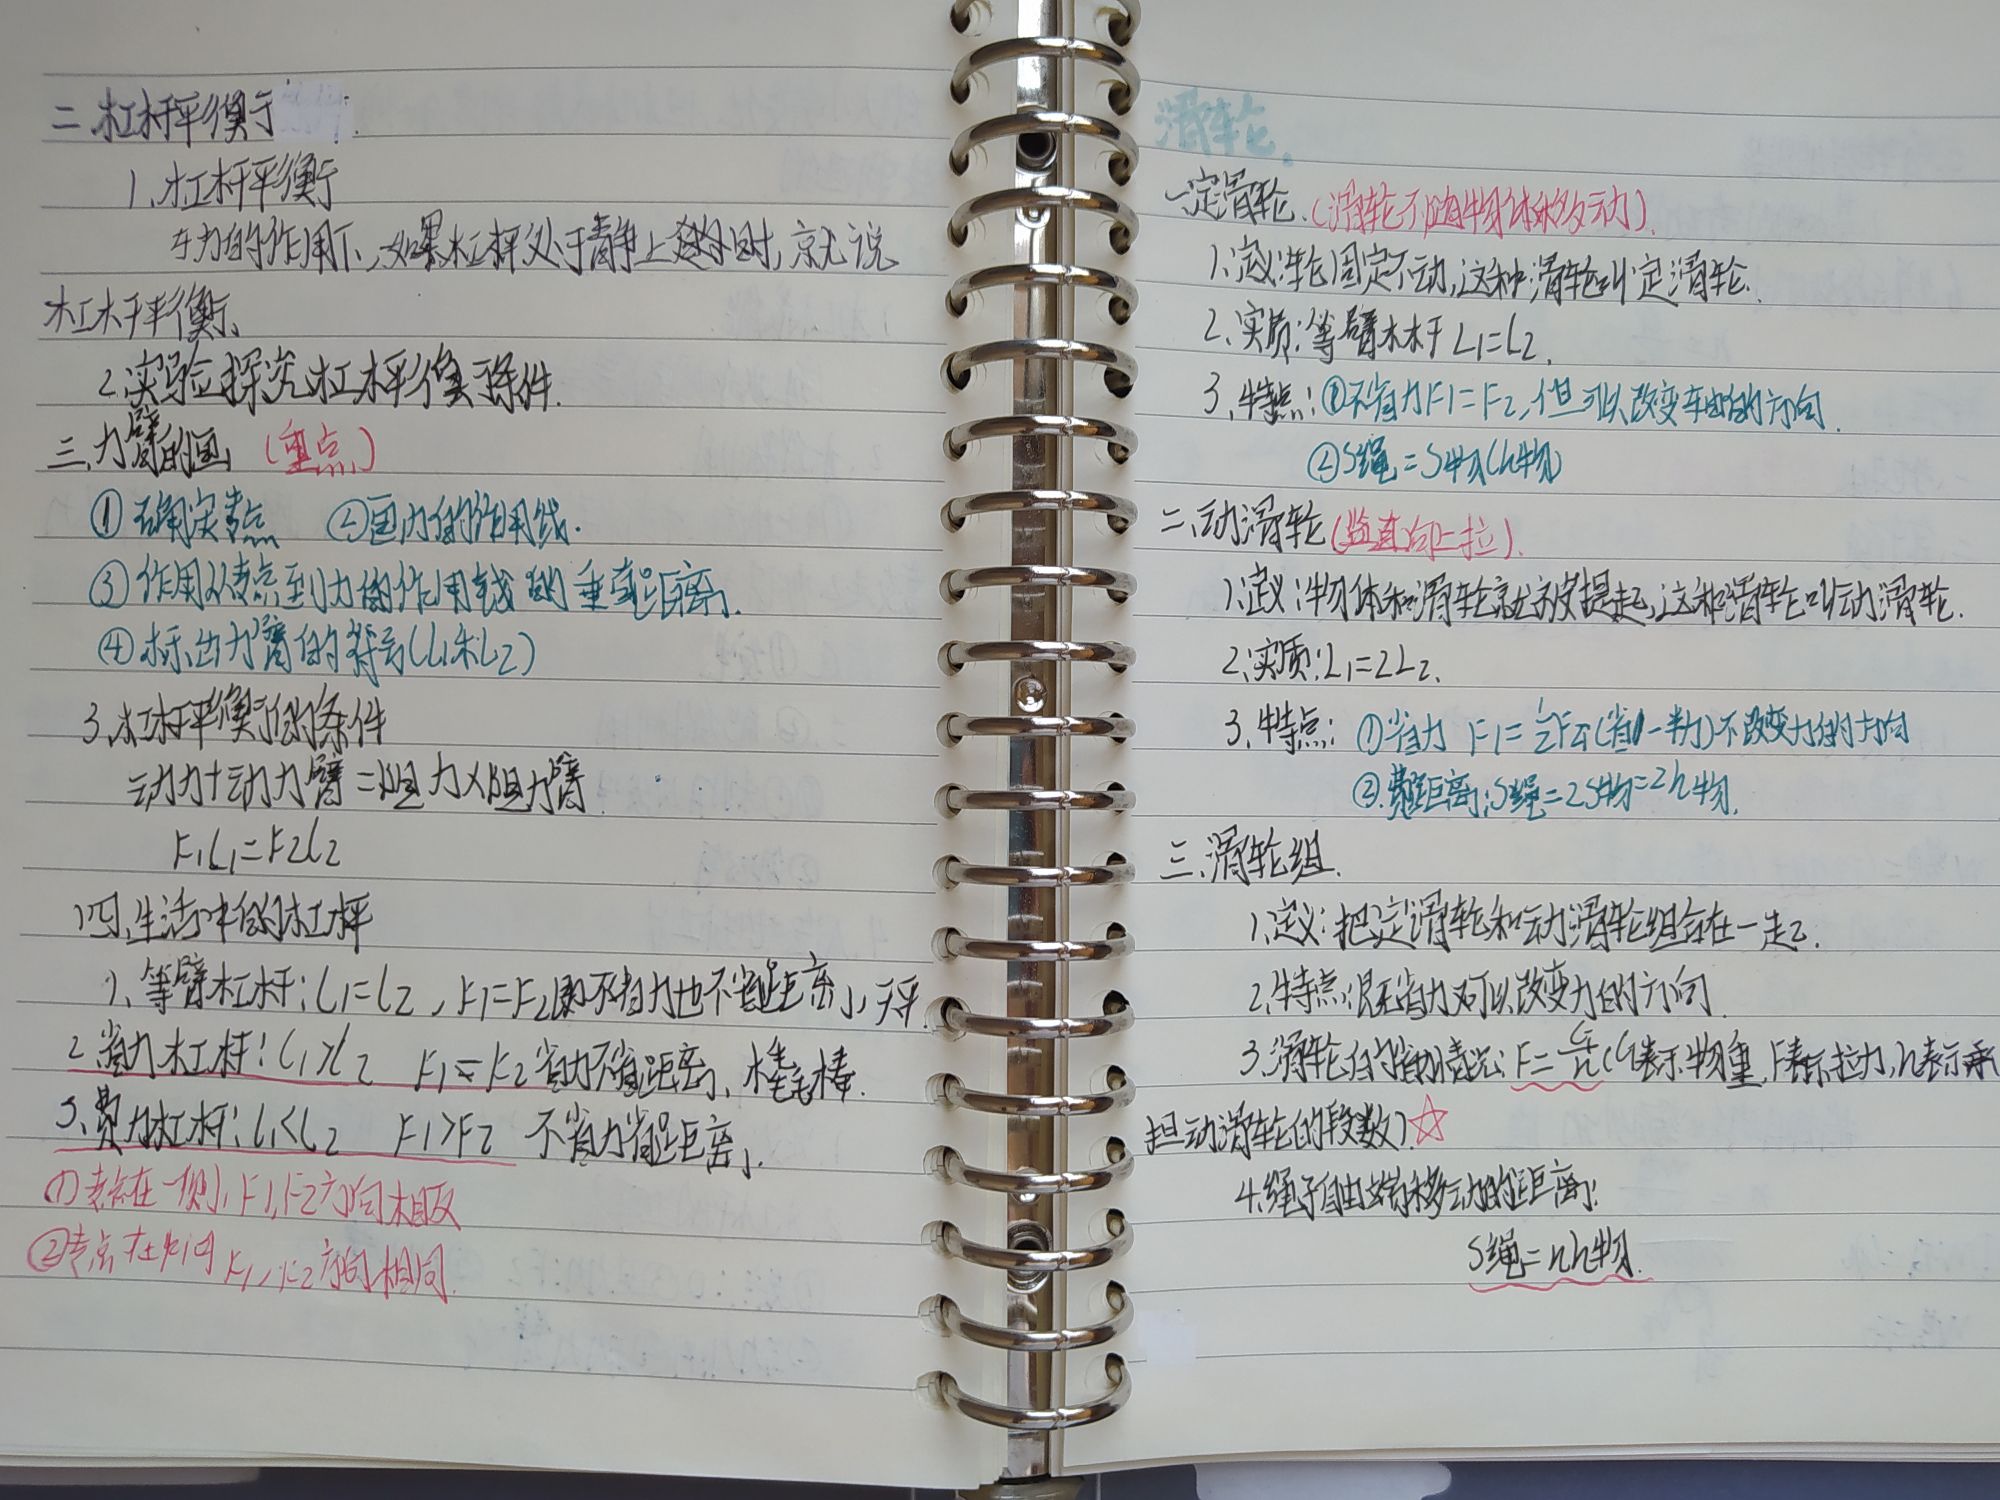 二.杠杆平衡
1.杠杆平衡
力的作用下,如果杠杆处于静止 时,就说
杠杆平衡.
2.实验探究杠杆平衡条件.
三.力臂的画(重点)
①确定支点 ②画力的作用线.
③作用从支点到力的作用线的垂直距离.
④标出力臂的符号(L1和L2)
3.杠杆平衡的条件
动力+动力臂=阻力×阻力臂
F1L1=F2L2
四.生活中的杠杆
1、等臂杠杆:L1=L2,F1=F2即不省力也不省距离、天平.
2.省力杠杆:L1>L2 F1=F2省力不省距离、 棒.
3、费力杠杆:L1<L2 F1>F2 不省力省距离.
①支点在一侧,F1,F2方向相反
②支点在中间 F1,F2方向相同.
滑轮.
一.定滑轮.(滑轮不随物体移动).
1.定义:轮固定不动,这种滑轮叫定滑轮.
2.实质:等臂木杆L1=L2.
3.特点:①不省力F1=F2,但可以改变 的方向.
②S绳=S物(h物)
二.动滑轮(竖直向上拉).
1.定义:物体和滑轮就被提起,这种滑轮叫动滑轮.
2.实质:L1=2L2.
3.特点:①省力 F1=1/2F2(省一半力)不改变力的方向
②.费距离:S绳=2S物=2h物.
三.滑轮组.
1.定义:把定滑轮和动滑轮组合在一起.
2.特点:既省力又可以改变力的方向
3.滑轮的省力情况:F=G/n(G表示物重,F表示拉力,n表示承
担动滑轮的段数)☆
4.绳子自由端移动的距离:
S绳=nh物.